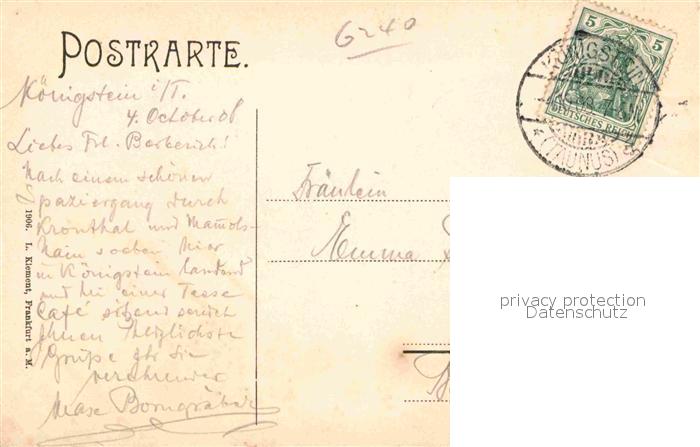 6240
POSTKARTE.
5 5
DEUTSCHES REICH
KÖNIGSTEIN
(TAUNUS)
Königstein i/T.
4. October 08
Liebes Frl. Berberich!
Nach einem schönen
Spaziergang durch
Kronthal und Mamols-
hain soeben hier
in Königstein landend
und bei einer Tasse
Café sitzend sende ich
Ihnen herzlichste
Grüße Ihr Sie
verehrender
Max
Fräulein
Emma
1906. L. Klement, Frankfurt a. M.
privacy protection
Datenschutz